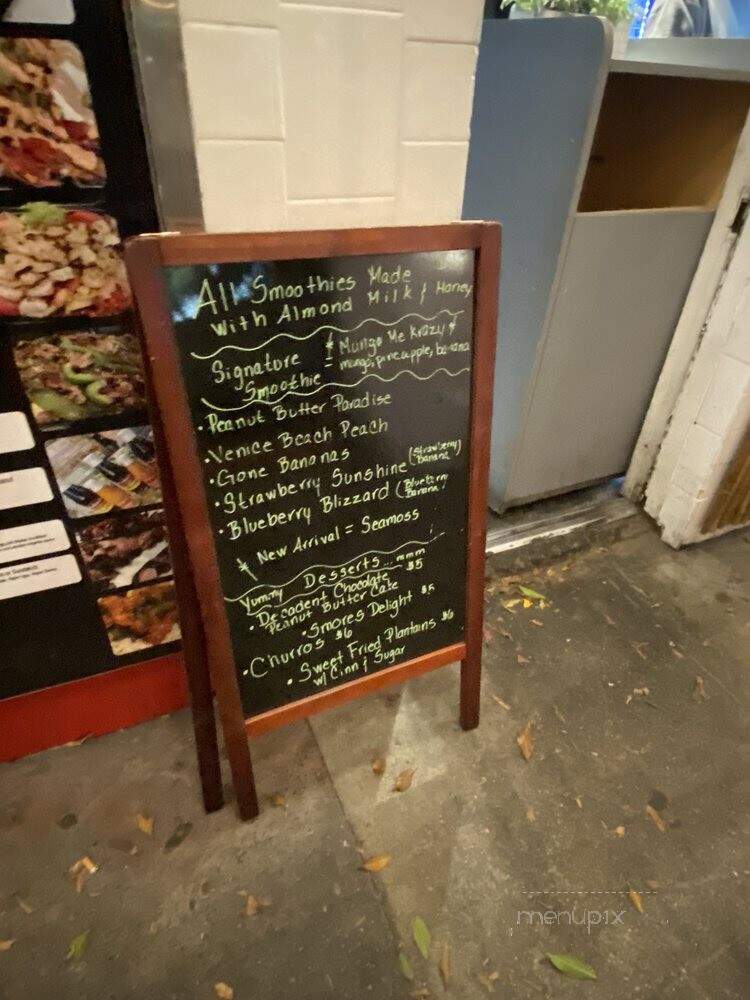 All Smoothies Made
With Almond Milk & Honey
Signature
Smoothie
* Mango Me Krazy *
= mango, pineapple, banana
• Peanut Butter Paradise
• Venice Beach Peach
• Gone Bananas
• Strawberry Sunshine (Strawberry Banana)
• Blueberry Blizzard (Blueberry Banana)
* New Arrival = Seamoss
Yummy Desserts... mmm
• Decadent Chocolate $5
Peanut Butter Cake
• Smores Delight $5
• Churros $6
• Sweet Fried Plantains $6
w/ Cinn & Sugar
menupix